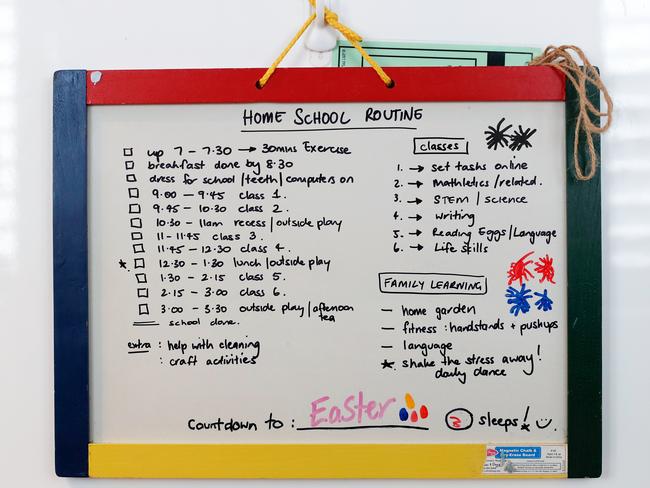 HOME SCHOOL ROUTINE
up 7 – 7.30 → 30mins Exercise
breakfast done by 8.30
dress for school / teeth / computers on
9.00 – 9.45 class 1.
9.45 – 10.30 class 2.
10.30 – 11am recess / outside play
11 – 11.45 class 3.
11.45 – 12.30 class 4.
* 12.30 – 1.30 lunch / outside play
1.30 – 2.15 class 5.
2.15 – 3.00 class 6.
3.00 – 3.30 outside play / afternoon
tea
school done.
extra : help with cleaning
: craft activities
classes
1. → set tasks online
2. → Mathletics / related.
3. → STEM / science
4. → writing
5. → Reading Eggs / Language
6. → Life skills
FAMILY LEARNING
– home garden
– fitness : handstands + pushups
– language
* shake the stress away!
daily dance
Countdown to : Easter 3 sleeps!
Magnetic Chalk &
Dry-Erase Board